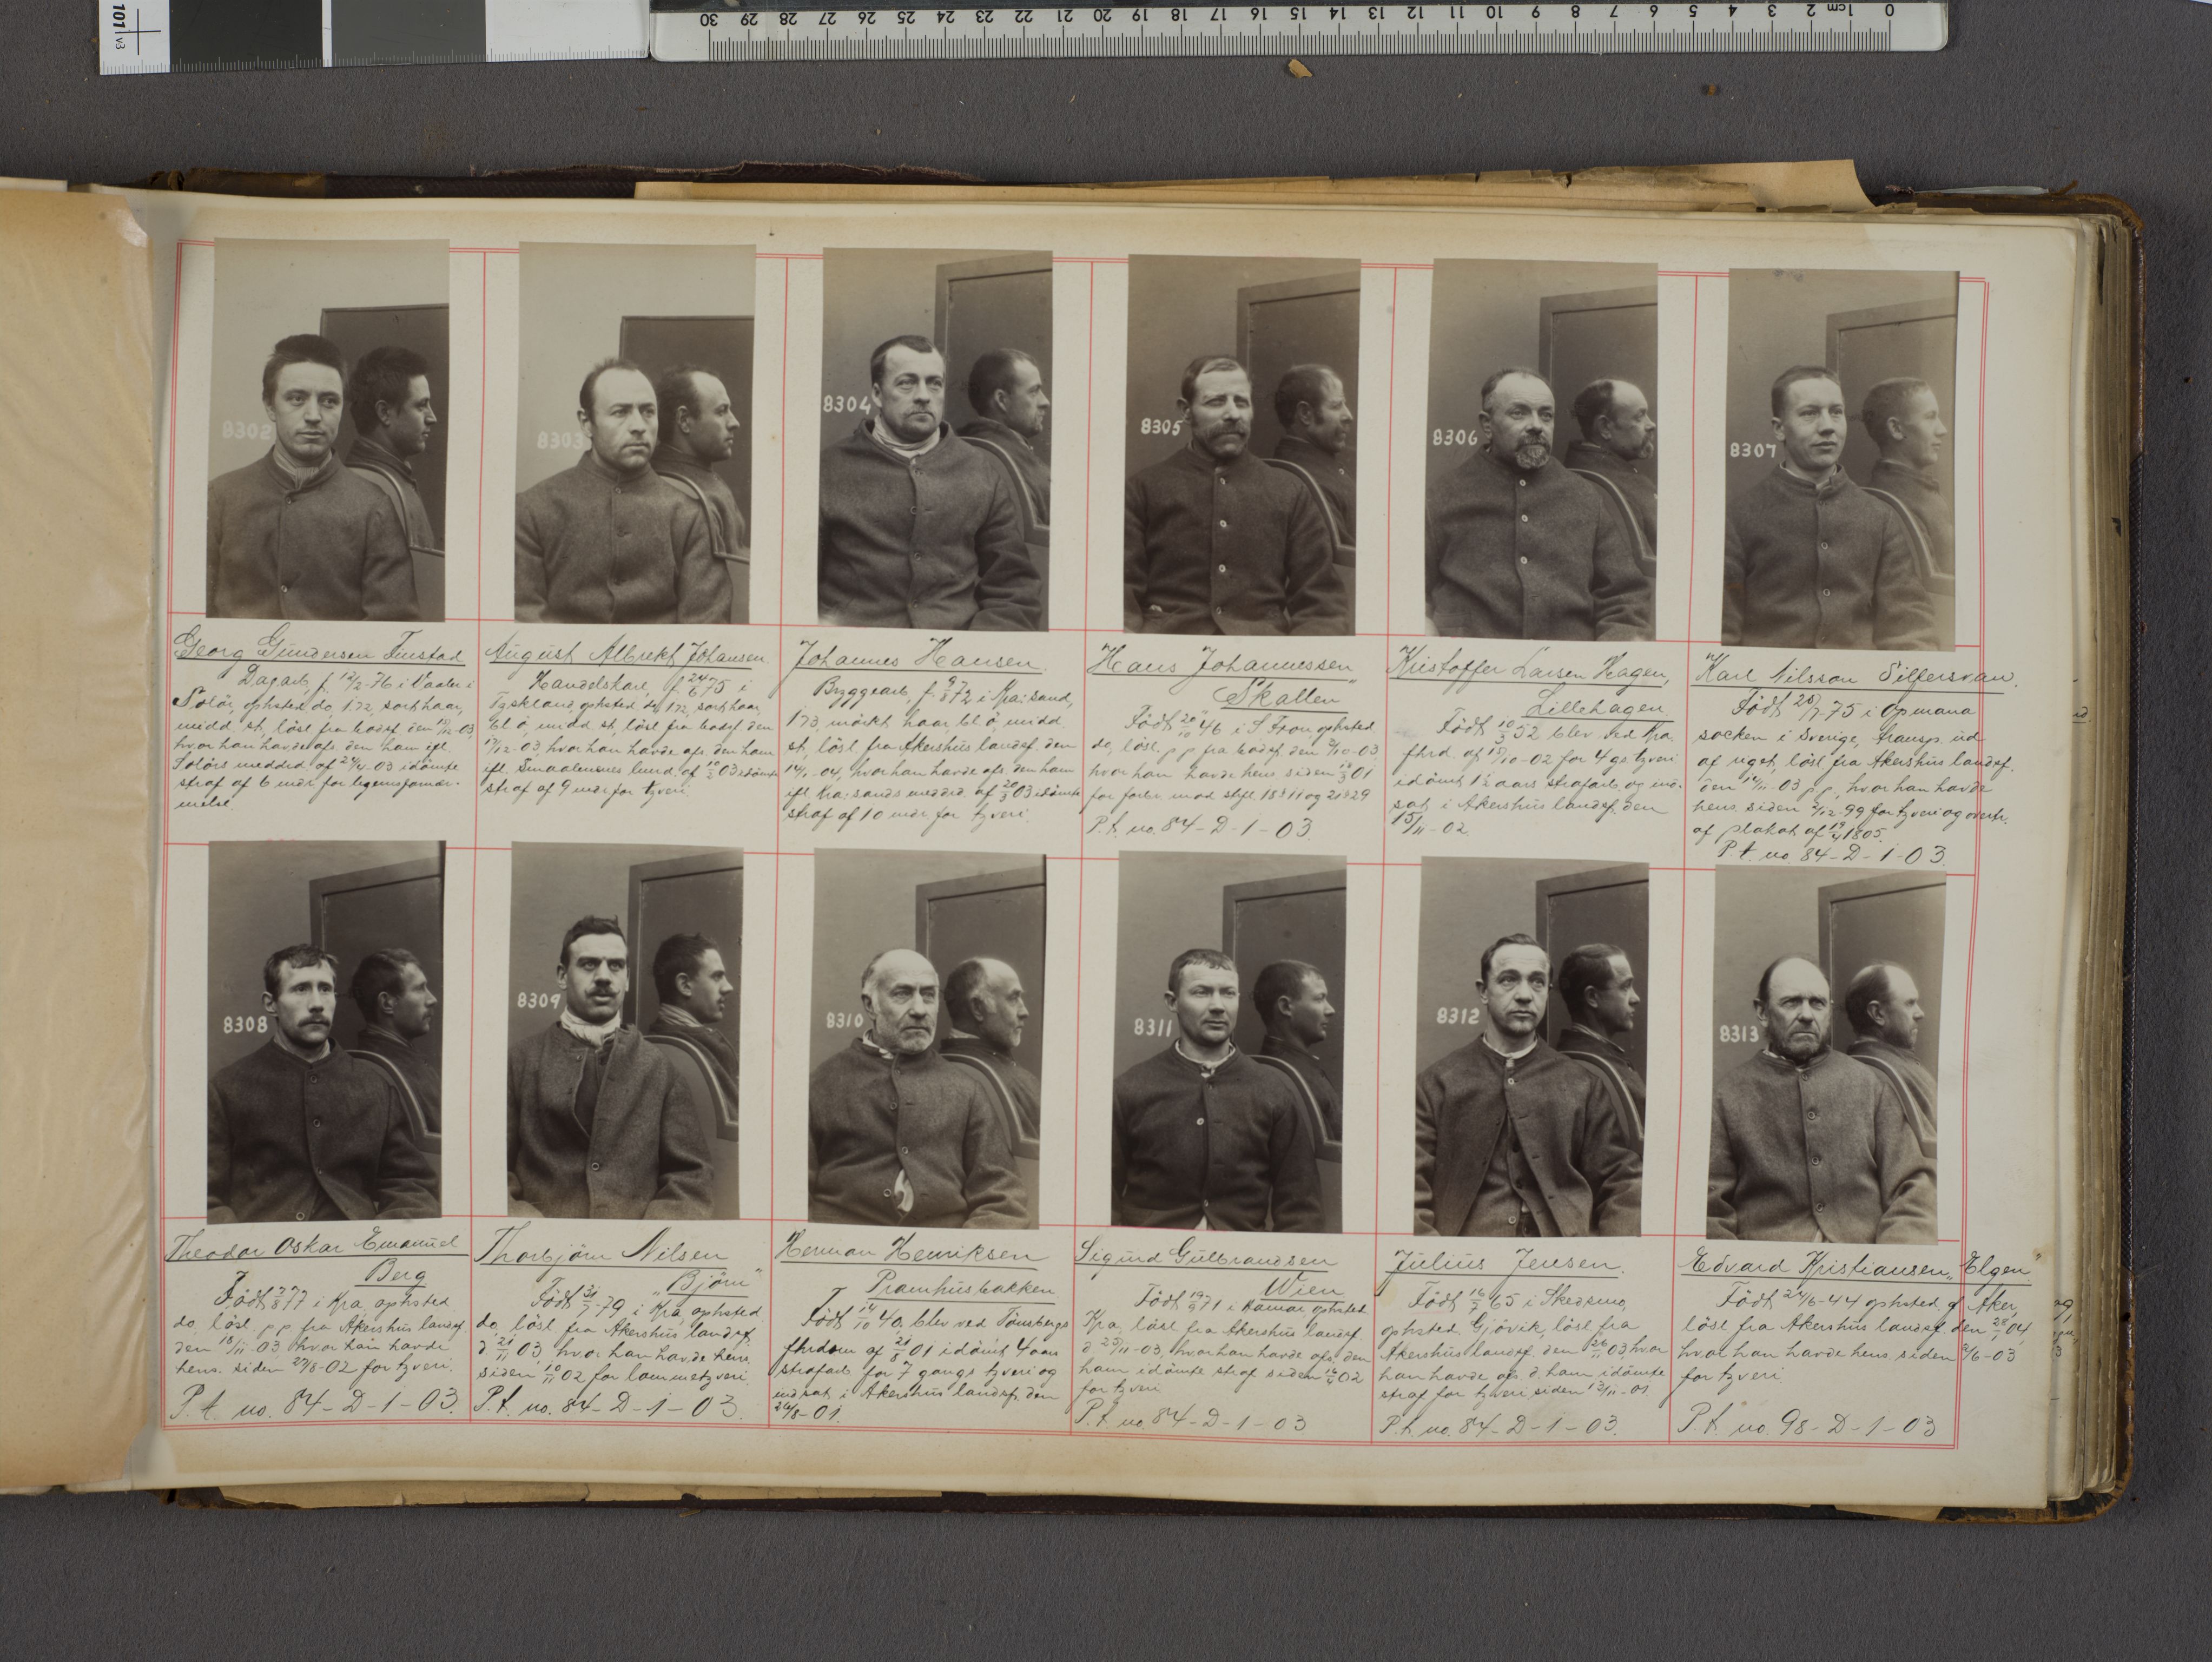 101 v3
0 1cm 2 3 4 5 6 7 8 9 10 11 12 13 14 15 16 17 18 19 20 21 22 23 24 25 26 27 28 29 30
8302
8303
8304
8305
8306
8307
Georg Gundersen Finstad
Dagarb, f. 12/2-76 i Vaaler i
Solör, ophsted do, 172, sort haar,
midd. st, lösl fra bodsf. den 12/12-03,
hvor han havde afs. den ham efl.
Solörs meddrd. af 24/4-03 idömte
straf af 6 mdr for legemsfornær-
melse.
August Albrekt Johansen
Handelskarl, f. 24/6 75 i
Tyskland, ophsted do, 172, sort haar,
bl ö, midd. st, lösl fra bodsf. den
17/12-03, hvor han havde afs. den ham
efl. Smaalenenes lmrd. af 10/2 03 idömte
straf af 9 mdr for tyveri.
Johannes Hansen.
Bryggearb, f. 9/8 72 i Kra:sand,
173, mörkt haar, bl ö, midd.
st, lösl. fra Akershus landsf. den
14/1-04, hvor han havde afs den ham
efl. Kra:sands meddrd af 20/3 03 idömte
straf af 10 mdr for tyveri.
Hans Johannessen
"Skallen"
Födt 20/10 46 i S. Fron, ophsted
do, lösl. p p fra bodsf. den 3/10-03,
hvor han havde hens siden 18/3 01
for forbr. mod stfl. 18 § 11 og 21 § 29
P.t. no. 84-D-1-03.
Kristoffer Larsen Hagen,
Lillehagen.
Födt 10/3 52 blev ved Kra.
fhrd. af 17/10-02 for 4 gs tyveri
idömt 1½ aars strafarb. og ind-
sat i Akershus landsf. den
15/11-02.
Karl Nilsson Silfersvan.
Födt 20/7-75 i Opmana
socken i Sverige, transp. ud
af riget, lösl fra Akershus landsf.
den 14/11-03 p p, hvor han havde
hens. siden 2/12-99 for tyveri og overtr.
af plakat af 19/4 1805.
P.t. no. 84-D-1-03.
8308
8309
8310
8311
8312
8313
Theodor Oskar Emanuel
Berg
Födt 2/8 77 i Kra, ophsted
do, lösl. p p fra Akershus landsf.
den 18/11-03, hvor han havde
hens. siden 27/8-02 for tyveri.
P.t. no. 84-D-1-03.
Thorbjörn Nilsen
"Björn"
Födt 31/7-79 i Kra, ophsted
do, lösl fra Akershus landsf.
d 21/11 03, hvor han havde hens.
siden 10/11 02 for lommetyveri.
P.t. no. 84-D-1-03.
Herman Henriksen
Pramhusbakken
Födt 14/10 40, blev ved Tönsbergs
fhrdom af 21/8 01 idömt 4 aars
strafarb. for 7 gangs tyveri og
indsat i Akershus landsf. den
24/8-01.
Sigurd Gulbrandsen
Wien
Födt 19/9 71 i Hamar, ophsted
Kra, lösl fra Akershus landsf.
d 25/11-03, hvor han havde afs. den
ham idömte straf siden 16/4 02
for tyveri.
P.t. no. 84-D-1-03
Julius Jensen.
Födt 16/7 65 i Skedsmo,
ophsted. Gjövik, lösl fra
Akershus landsf. den 26/11 03 hvor
han havde afs. d. ham idömte
straf for tyveri siden 13/11-01.
P.t. no. 84-D-1-03.
Edvard Kristiansen "Elgen"
Födt 24/6-44 ophsted. i Aker,
lösl fra Akershus landsf. den 28/1 04,
hvor han havde hens siden 2/6-03
for tyveri.
P.t. no. 98-D-1-03